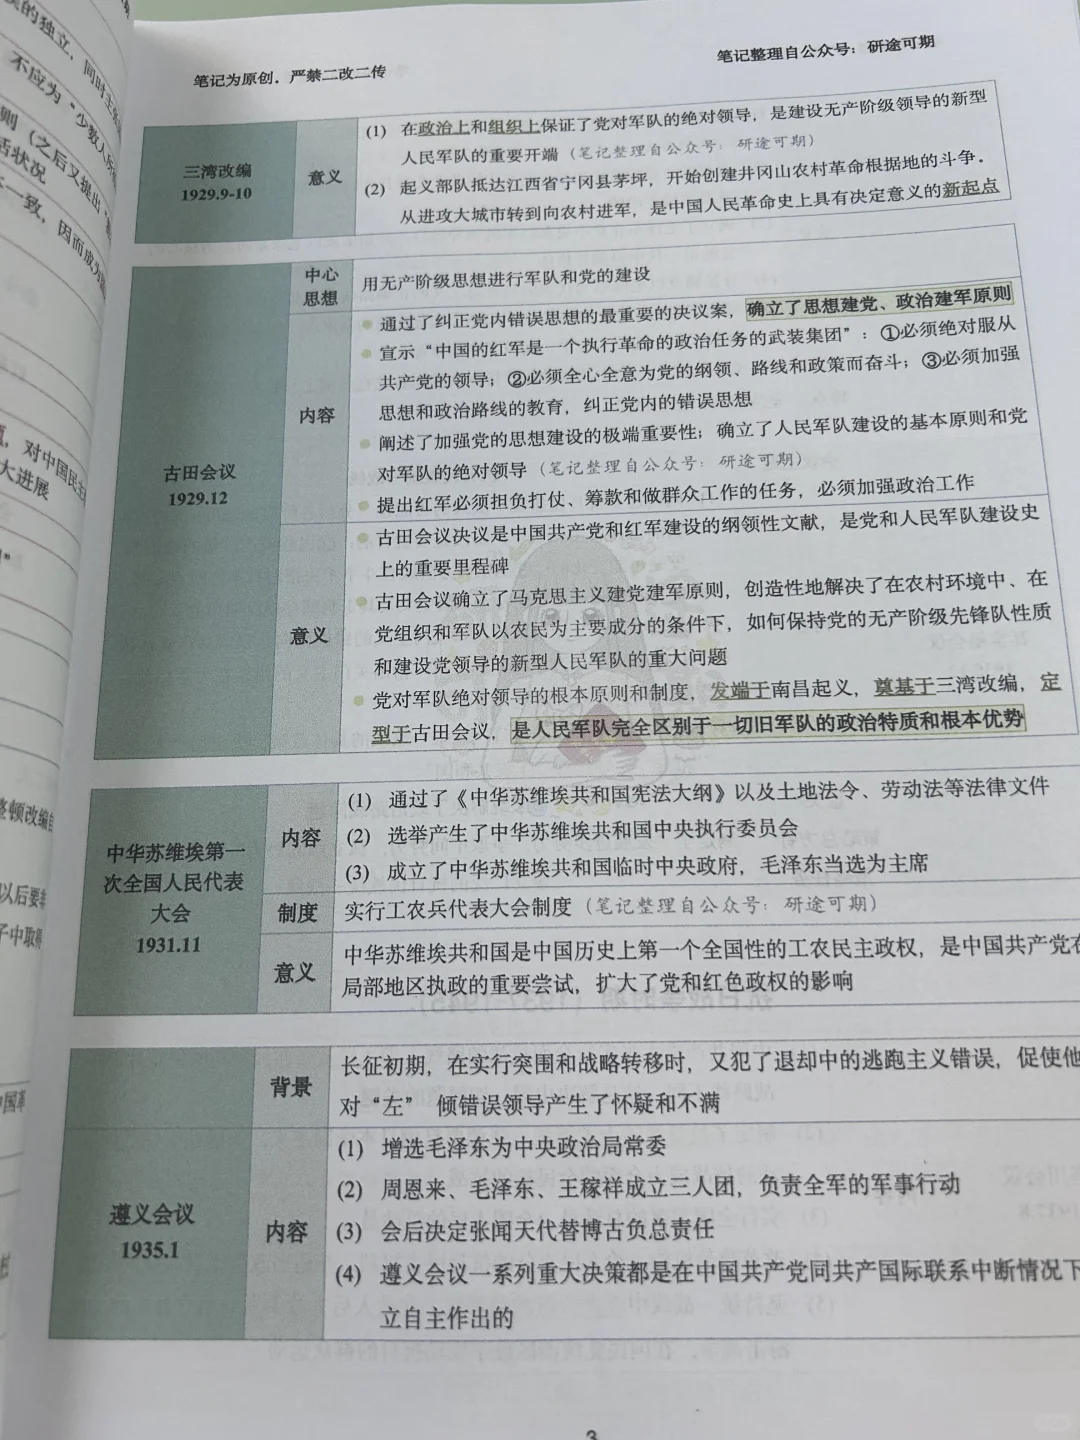 笔记为原创，严禁二改二传
笔记整理自公众号：研途可期
三湾改编
1929.9-10
意义
(1) 在政治上和组织上保证了党对军队的绝对领导，是建设无产阶级领导的新型
人民军队的重要开端（笔记整理自公众号：研途可期）
(2) 起义部队抵达江西省宁冈县茅坪，开始创建井冈山农村革命根据地的斗争。
从进攻大城市转到向农村进军，是中国人民革命史上具有决定意义的新起点
古田会议
1929.12
中心
思想
用无产阶级思想进行军队和党的建设
内容
通过了纠正党内错误思想的最重要的决议案，确立了思想建党、政治建军原则
宣示“中国的红军是一个执行革命的政治任务的武装集团”：①必须绝对服从
共产党的领导；②必须全心全意为党的纲领、路线和政策而奋斗；③必须加强
思想和政治路线的教育，纠正党内的错误思想
阐述了加强党的思想建设的极端重要性；确立了人民军队建设的基本原则和党
对军队的绝对领导（笔记整理自公众号：研途可期）
提出红军必须担负打仗、筹款和做群众工作的任务，必须加强政治工作
意义
古田会议决议是中国共产党和红军建设的纲领性文献，是党和人民军队建设史
上的重要里程碑
古田会议确立了马克思主义建党建军原则，创造性地解决了在农村环境中、在
党组织和军队以农民为主要成分的条件下，如何保持党的无产阶级先锋队性质
和建设党领导的新型人民军队的重大问题
党对军队绝对领导的根本原则和制度，发端于南昌起义，奠基于三湾改编，定
型于古田会议，是人民军队完全区别于一切旧军队的政治特质和根本优势
中华苏维埃第一
次全国人民代表
大会
1931.11
内容
(1) 通过了《中华苏维埃共和国宪法大纲》以及土地法令、劳动法等法律文件
(2) 选举产生了中华苏维埃共和国中央执行委员会
(3) 成立了中华苏维埃共和国临时中央政府，毛泽东当选为主席
制度
实行工农兵代表大会制度（笔记整理自公众号：研途可期）
意义
中华苏维埃共和国是中国历史上第一个全国性的工农民主政权，是中国共产党在
局部地区执政的重要尝试，扩大了党和红色政权的影响
遵义会议
1935.1
背景
长征初期，在实行突围和战略转移时，又犯了退却中的逃跑主义错误，促使他
对“左” 倾错误领导产生了怀疑和不满
内容
(1) 增选毛泽东为中央政治局常委
(2) 周恩来、毛泽东、王稼祥成立三人团，负责全军的军事行动
(3) 会后决定张闻天代替博古负总责任
(4) 遵义会议一系列重大决策都是在中国共产党同共产国际联系中断情况下
立自主作出的
3